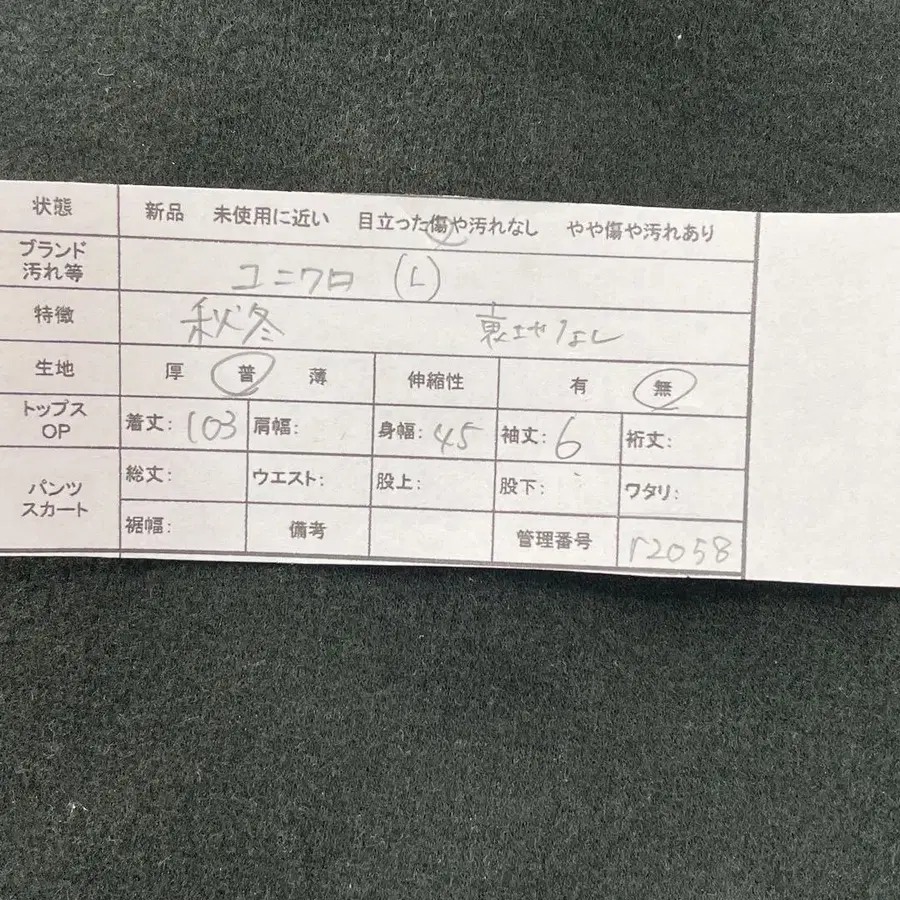 状態 新品 未使用に近い 目立った傷や汚れなし やや傷や汚れあり
ブランド
汚れ等 ユニクロ (L)
特徴 秋冬 裏地なし
生地 厚 普 薄 伸縮性 有 無
トップス
OP 着丈: 103 肩幅: 身幅: 45 袖丈: 6 裄丈:
パンツ
スカート 総丈: ウエスト: 股上: 股下: ワタリ:
裾幅: 備考 管理番号 r2058